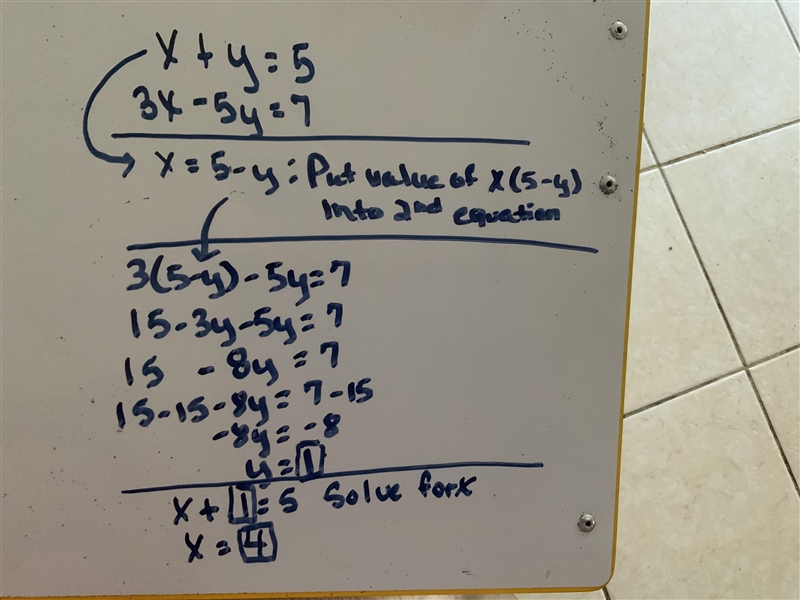 x + y = 5
3x - 5y = 7
x = 5 - y : Put value of x (5-y)
Into 2nd equation
3(5-y) - 5y = 7
15 - 3y - 5y = 7
15 - 8y = 7
15 - 15 - 8y = 7 - 15
-8y = -8
y = 1
x + 1 = 5 Solve for x
x = 4